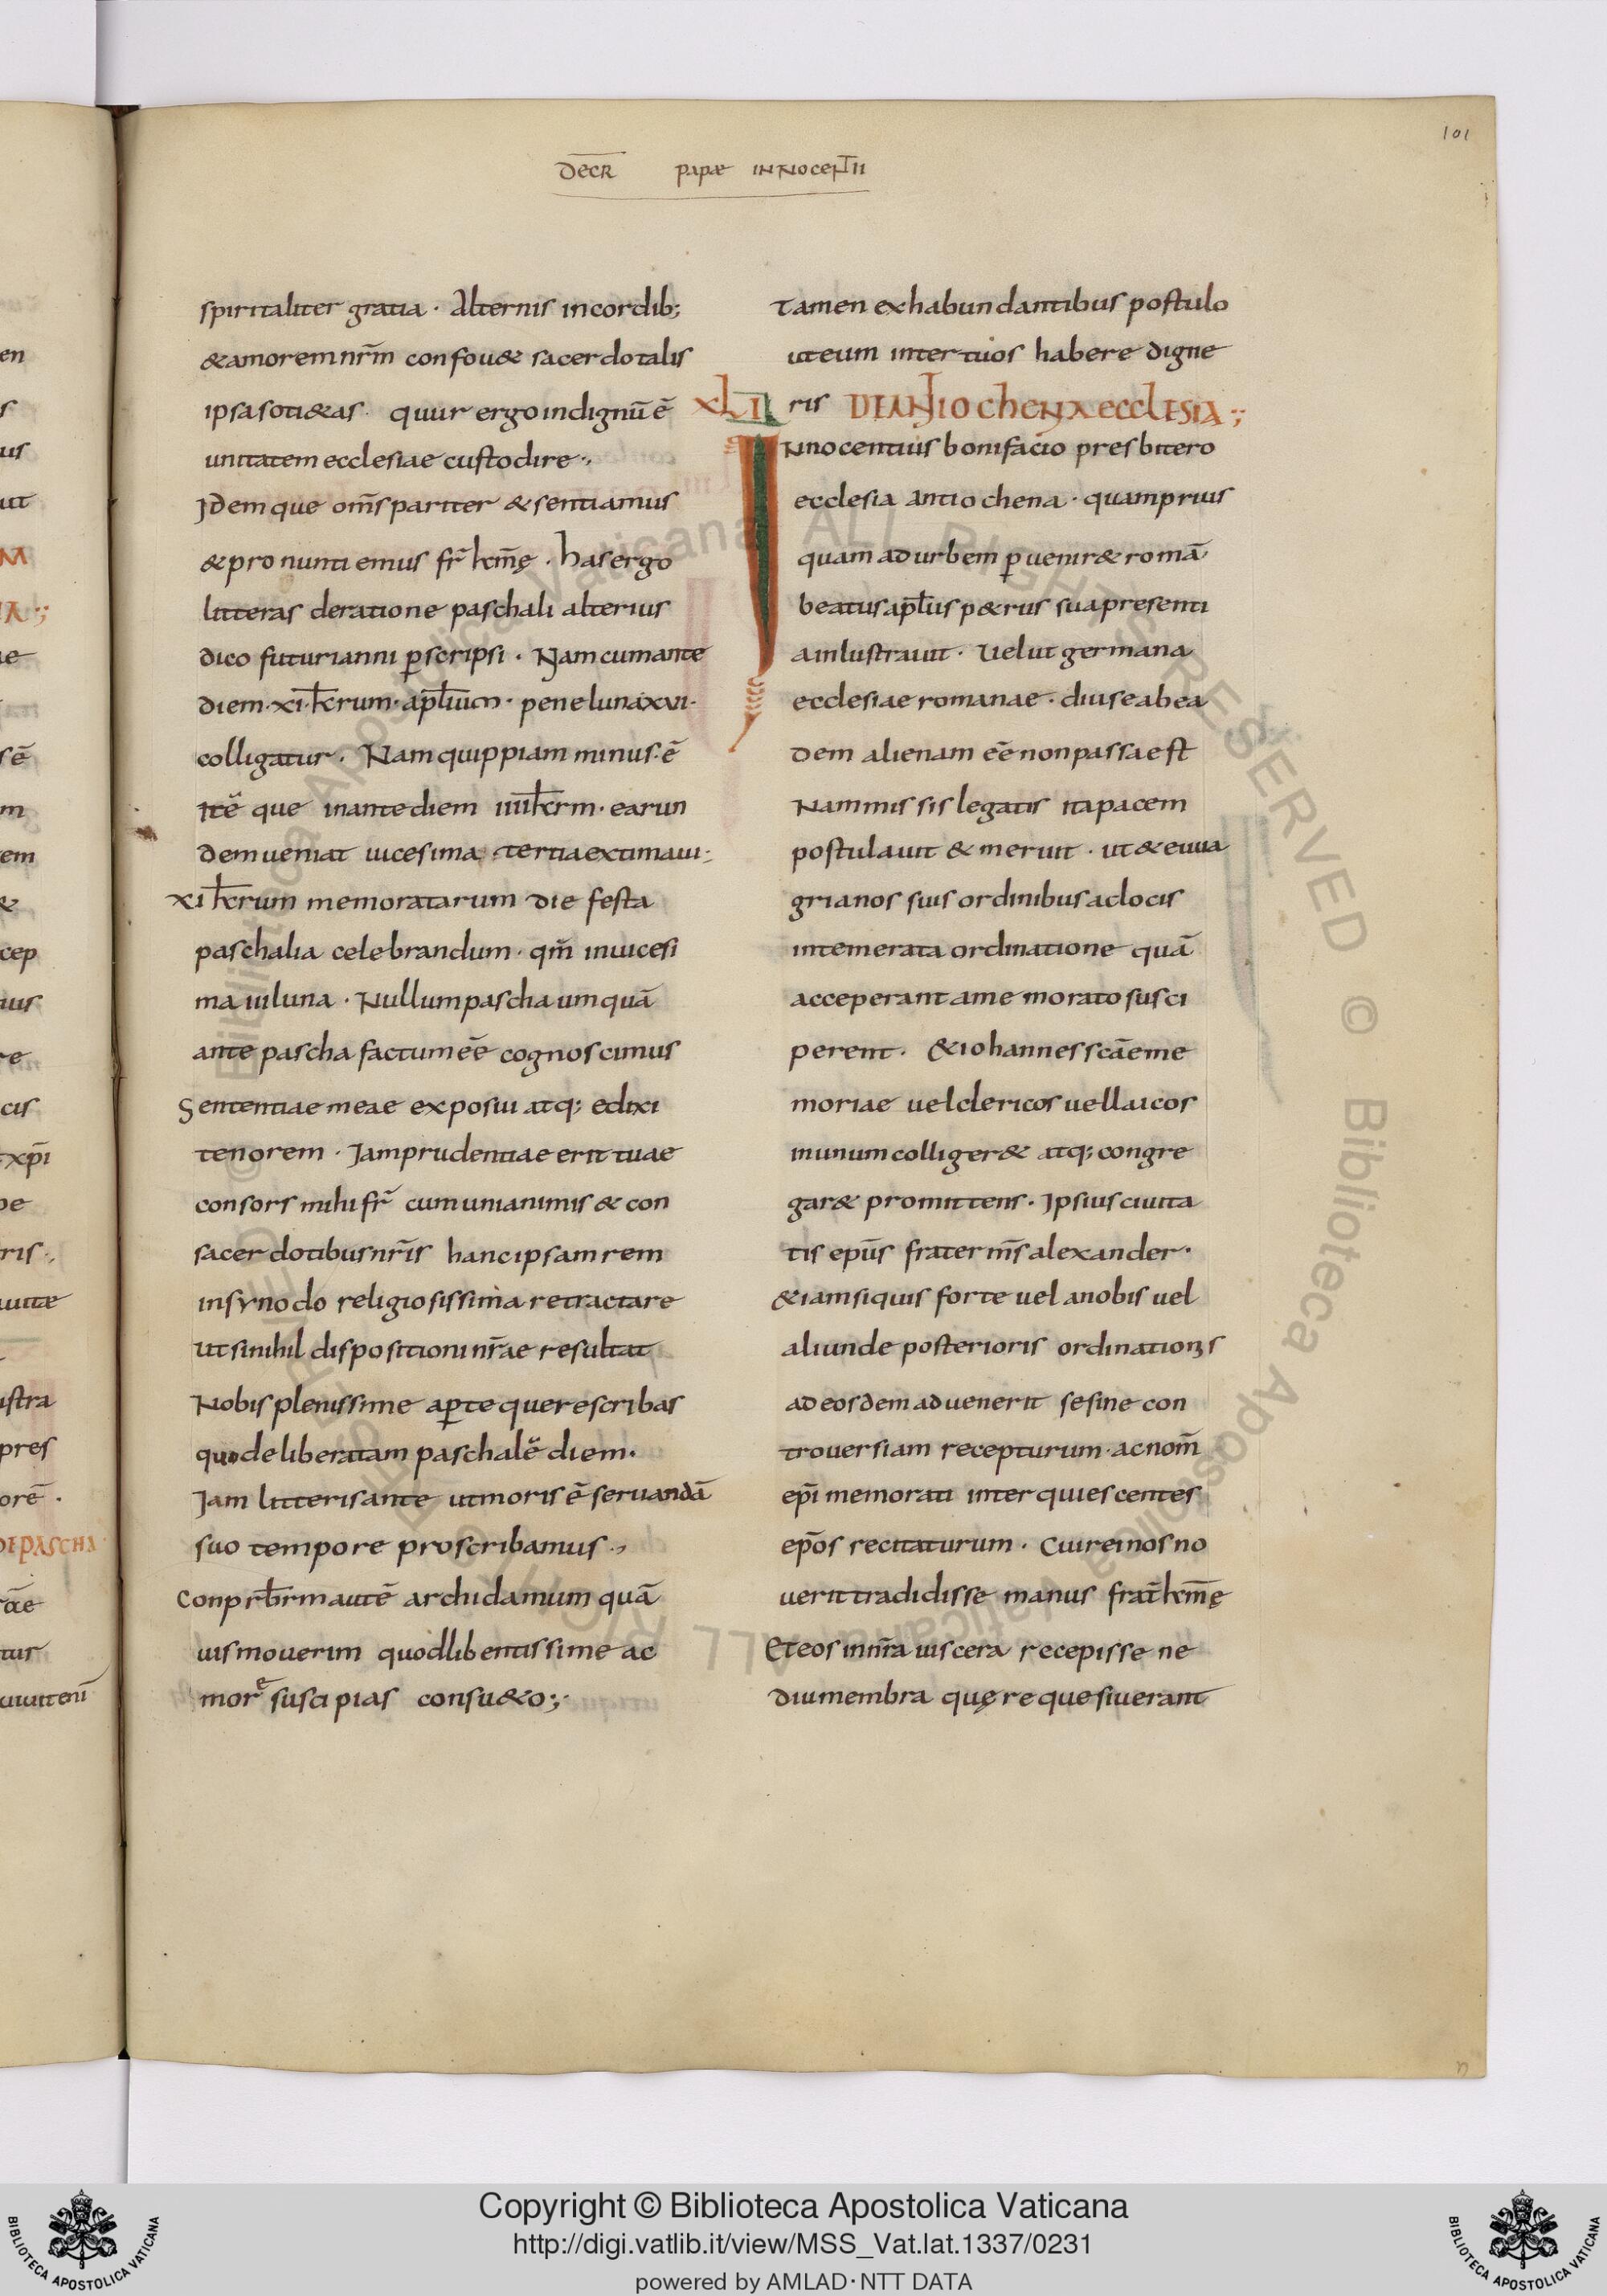 101
DECR PAPAE INNOCENTII
spiritaliter gratia · Alternis incordib;
&amoremnrm̄ confou& sacerdotalis
ipsasoti&as · quur ergoindignū ē
unitatem ecclesiae custodire·,
Idemque om̄s pariter & sentiamus
&pronuntiemus fr̄ km̄ę · has ergo
litteras deratione paschali alterius
dico futurianni p̱scripsi · Namcumante
diem·xi·klrum·apliū·peneluna xvi·
colligatur · Nam quippiam minus·ē
Itē que inantediem iiiiklrm·earun
demueniat uicesima·tertiaextimaui;
xi klrum memoratarum die festa
paschalia celebrandum·qm̄ inuicesi
ma uiluna · Nullumpascha umquā
ante pascha factum eē cognoscimus
Sententiae meae exposui atq; edixi
tenorem · Iamprudentiae erit tuae
consors mihi fr̄ cumunianimis & con
sacerdotibusnr̄is hancipsamrem
insynodo religiosissima retractare
Ut sinihil dispositioni nr̄ae resultat
Nobis plenissime ap̱te querescribas
quodeliberatam paschalē diem·
Iam litterisante utmoris ē seruandā
suo tempore proscribamus·,
Conprb̄rm autē archidamum quā
uismouerim quodlibentissime ac
more suscipias consu&o;·
tamen exhabundantibus postulo
uteum intertuos habere digne
XLI ris DEANTIOCHENA ECCLESIA;
INnocentius bonifacio presbitero
ecclesia antiochena · quamprius
quam adurbem p̱uenir& romā
beatus aplūs p&rus sua presenti
a inlustrauit · Uelut germana
ecclesiae romanae · diuseabea
dem alienam eē nonpassaest
Nammissis legatis itapacem
postulauit & meruit · ut & euua
grianos suis ordinibus aclocis
intemerata ordinatione quā
acceperant ame morato susci
perent · &iohannes scāeme
moriae uelclericos uellaicos
inunum colliger& atq; congre
gar& promittens · Ipsius ciuita
tis epūs frater m̄s alexander·
&iamsiquis forte uel anobis uel
aliunde posterioris ordinationis
adeosdem aduenerit sesine con
trouersiam recepturum·acnom̄
epī memorati inter quiescentes
epōs recitaturum · Cuireinosno
uerit tradidisse manus frat̄ km̄ę
Eteos innr̄a uiscera recepisse ne
diumembra quę requesiuerant
Copyright © Biblioteca Apostolica Vaticana
http://digi.vatlib.it/view/MSS_Vat.lat.1337/0231
powered by AMLAD·NTT DATA
BIBLIOTECA APOSTOLICA VATICANA
BIBLIOTECA APOSTOLICA VATICANA